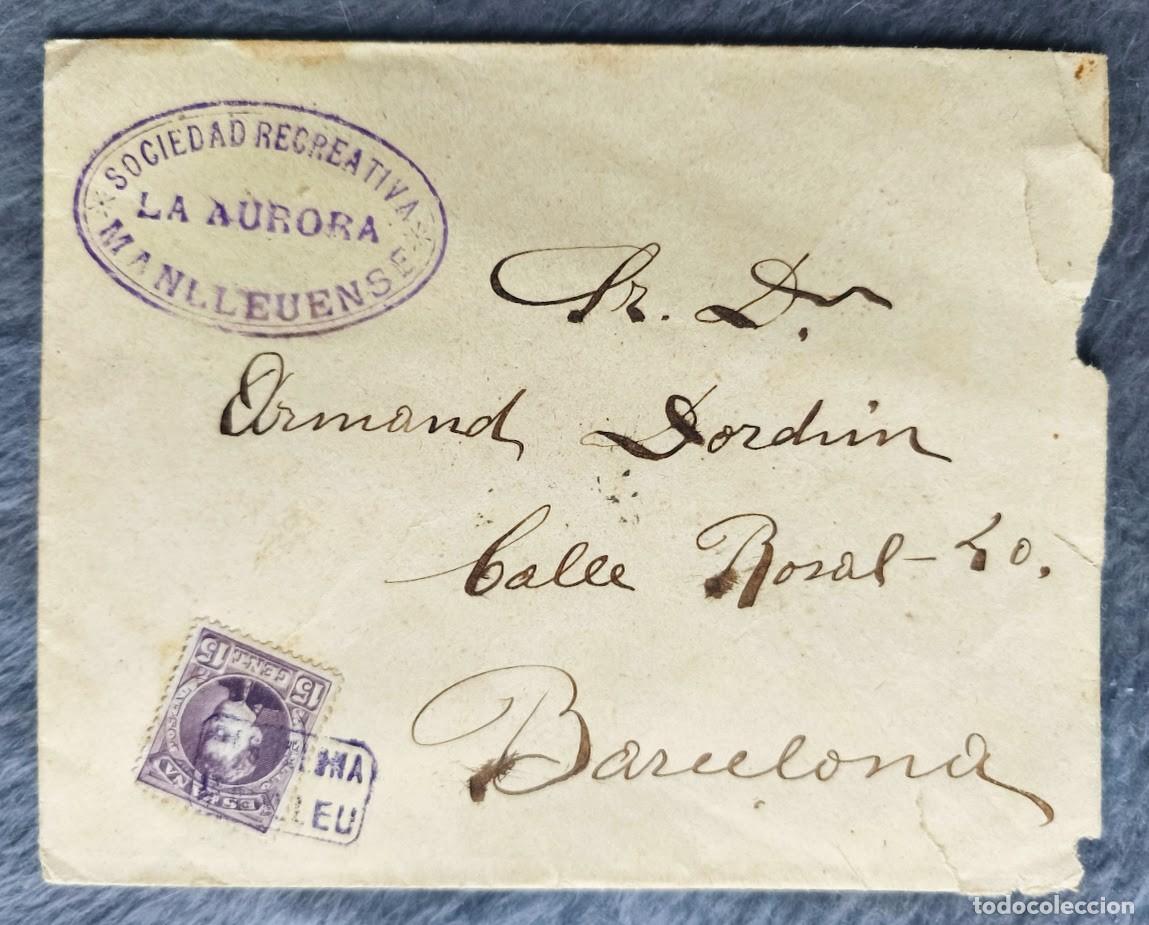 SOCIEDAD RECREATIVA
LA AURORA
MANLLEUENSE
Sr. Dn
Armand Dordin
Calle Rosal-
Barcelona
15 CENT.s 15
ESPAÑA
todocoleccion